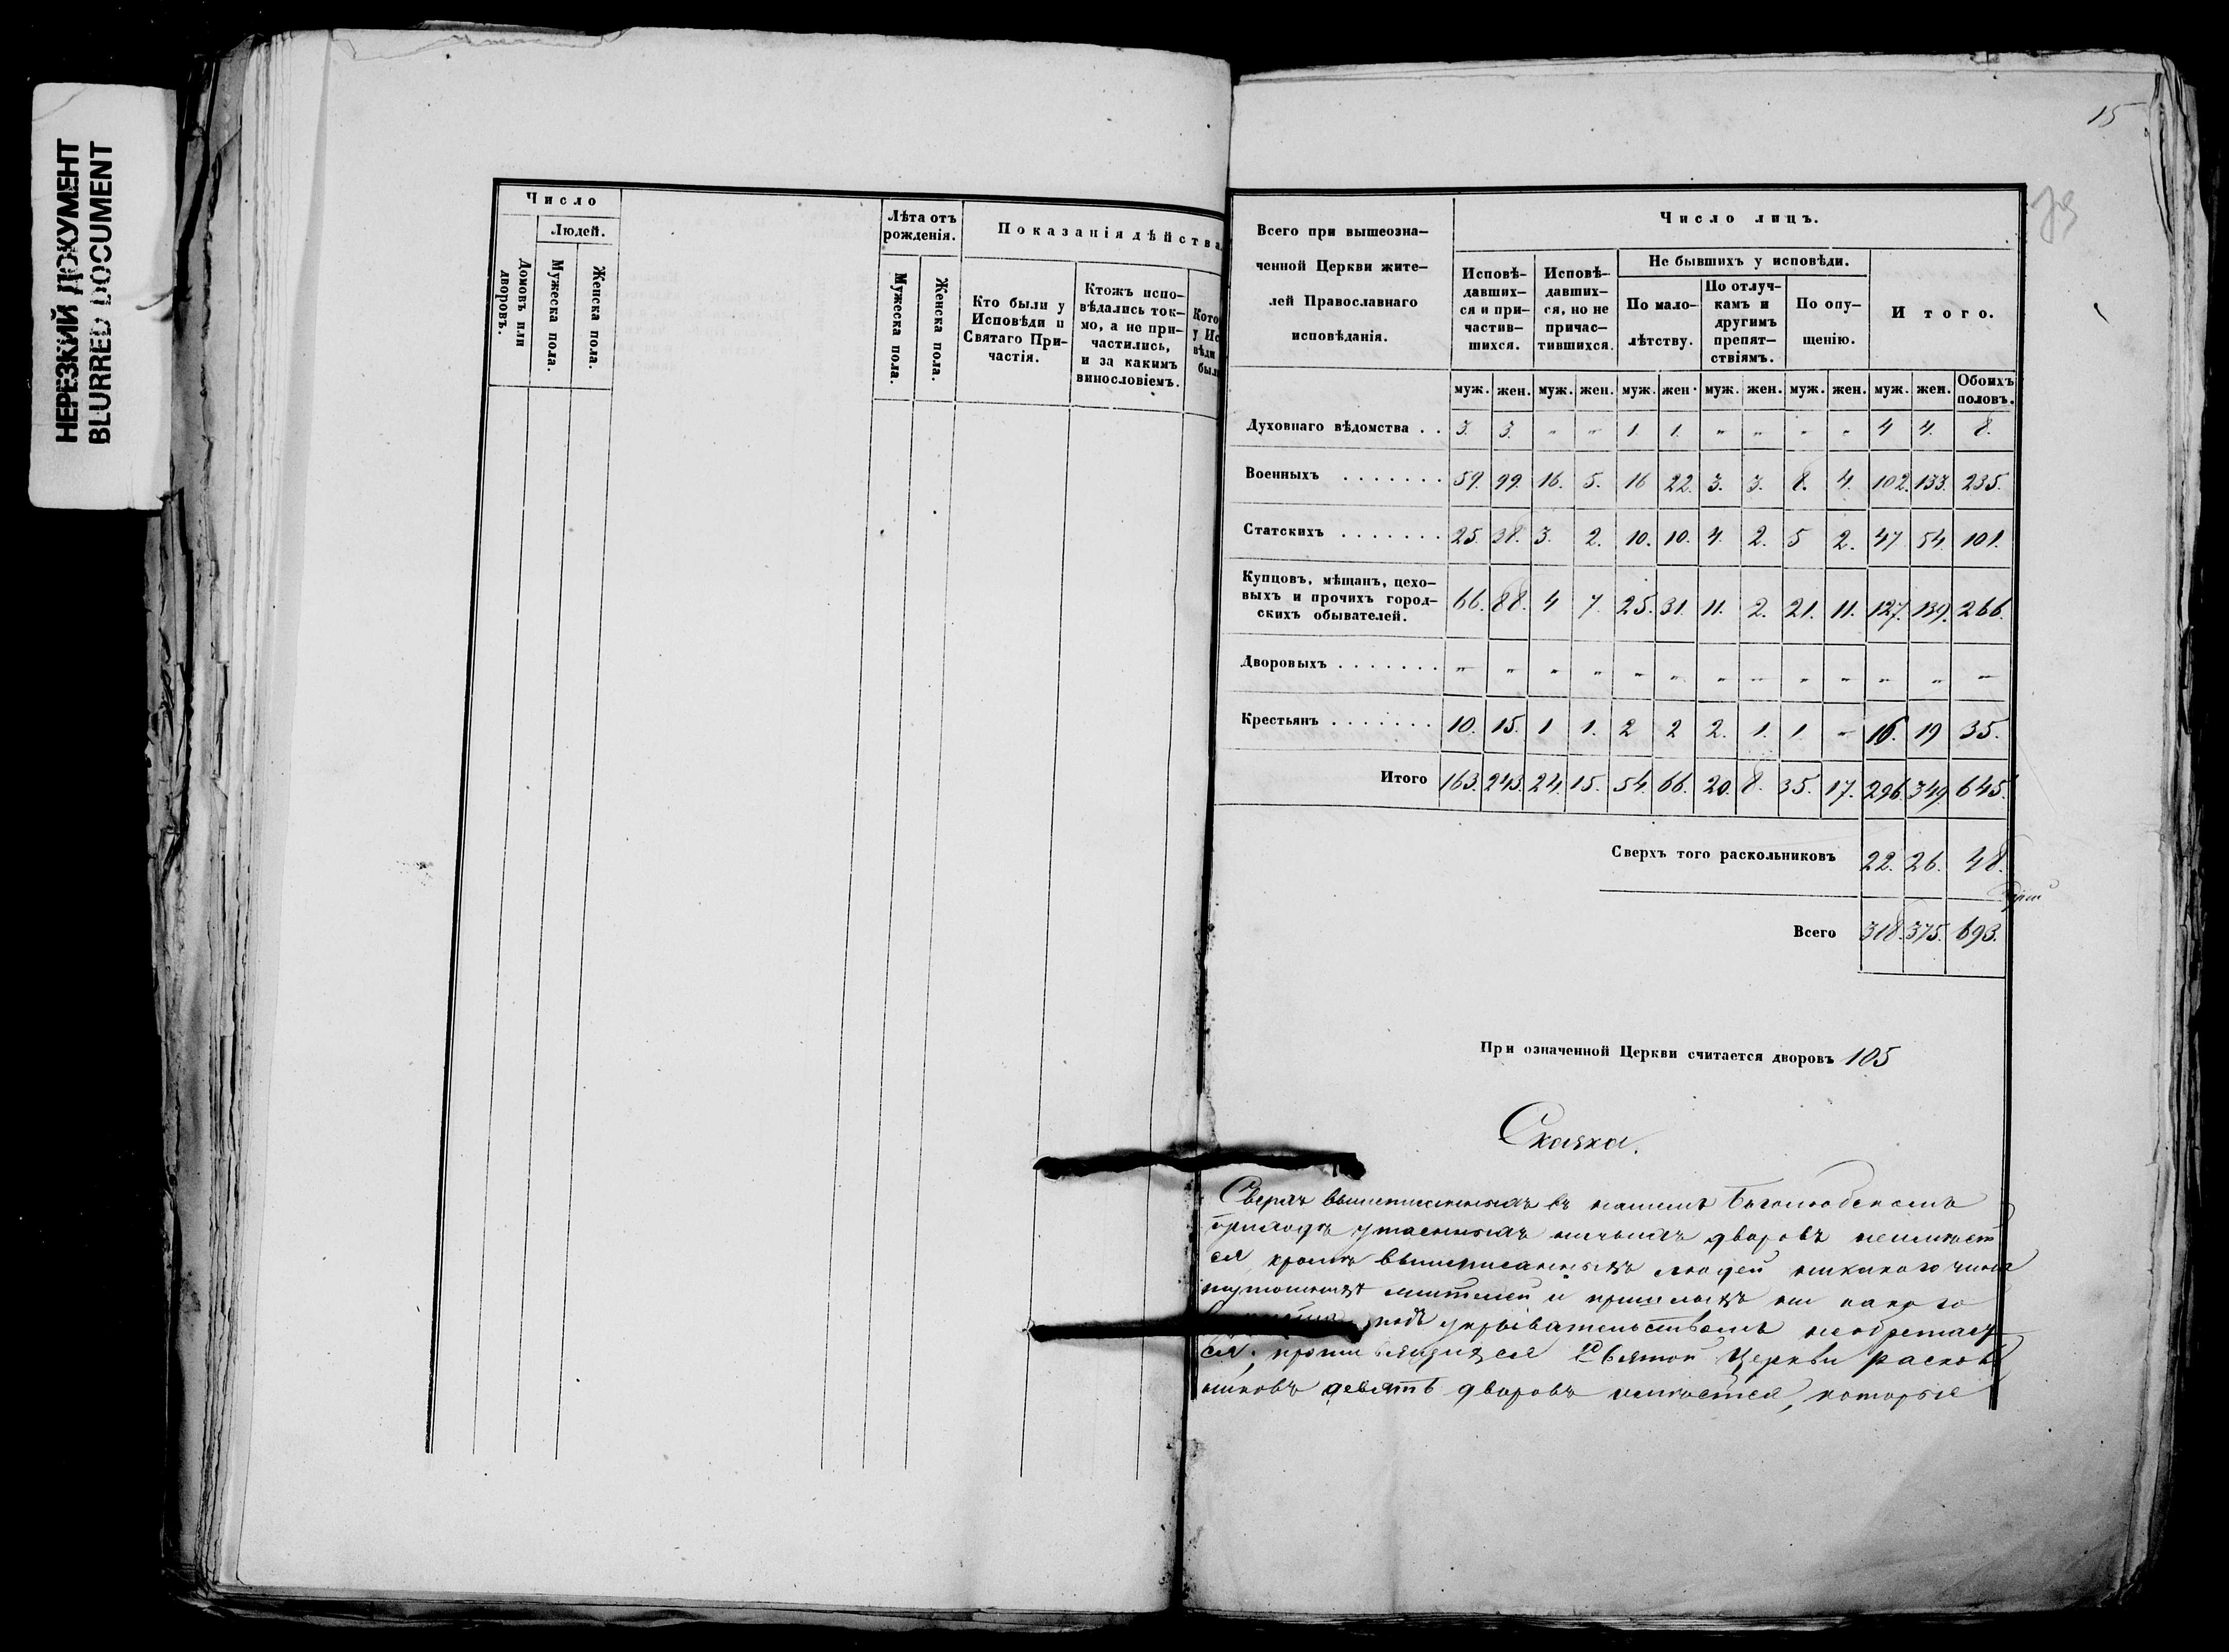 НЕРЕЗКИЙ ДОКУМЕНТ
BLURRED DOCUMENT
Число
Домовъ или дворовъ.
Людей.
Мужеска пола.
Женска пола.
Лѣта отъ рожденія.
Мужеска пола.
Женска пола.
Показанія дѣйства
Кто были у
Исповѣди и
Святаго При-
частія.
Ктожъ испо-
вѣдались ток-
мо, а не при-
частились,
и за какимъ
винословіемъ.
Кото
у Ис
вѣди
был
15
Всего при вышеозна-
ченной Церкви жите-
лей Православнаго
исповѣданія.
Число лицъ.
Исповѣ-
давших-
ся и при-
частив-
шихся.
Исповѣ-
давших-
ся, но не
причас-
тившихся.
Не бывшихъ у исповѣди.
По мало-
лѣтству.
По отлуч-
камъ и
другимъ
препят-
ствіямъ.
По опу-
щенію.
Итого.
муж. жен. муж. жен. муж. жен. муж. жен. муж. жен. муж. жен. Обоихъ половъ.
Духовнаго вѣдомства . . 3. 3. " " 1. 1. " " " " 4 4. 8.
Военныхъ . . . . . . . 59. 99. 16. 5. 16 22. 3. 3. 8. 4. 102. 133. 235.
Статскихъ . . . . . . . 25. 38. 3. 2. 10. 10. 4. 2. 5 2. 47. 54. 101.
Купцовъ, мѣщанъ, цехо-
выхъ и прочихъ город-
скихъ обывателей. 66. 88. 4 7. 25. 31. 11. 2. 21. 11. 127. 139. 266.
Дворовыхъ . . . . . . . " " " " " " " " " " " " "
Крестьянъ . . . . . . . 10. 15. 1 1. 2 2 2. 1. 1. " 16. 19 35.
Итого 163. 243. 24. 15. 54. 66. 20. 8. 35. 17. 296. 349. 645.
Сверхъ того раскольниковъ 22. 26. 48.
Всего 318. 375. 693.
При означенной Церкви считается дворовъ 105
Сказка.
Сверхъ вышеписанныхъ въ нашемъ Боголюбскомъ
приходѣ утаенныхъ ничьихъ дворовъ неимѣет
ся, кромѣ вышеписанныхъ людей никакого чина
и пришлыхъ ни какого
подъ укрывательствомъ необретает
ся; Святой Церкви раскол
никовъ девять дворовъ имѣется, которые